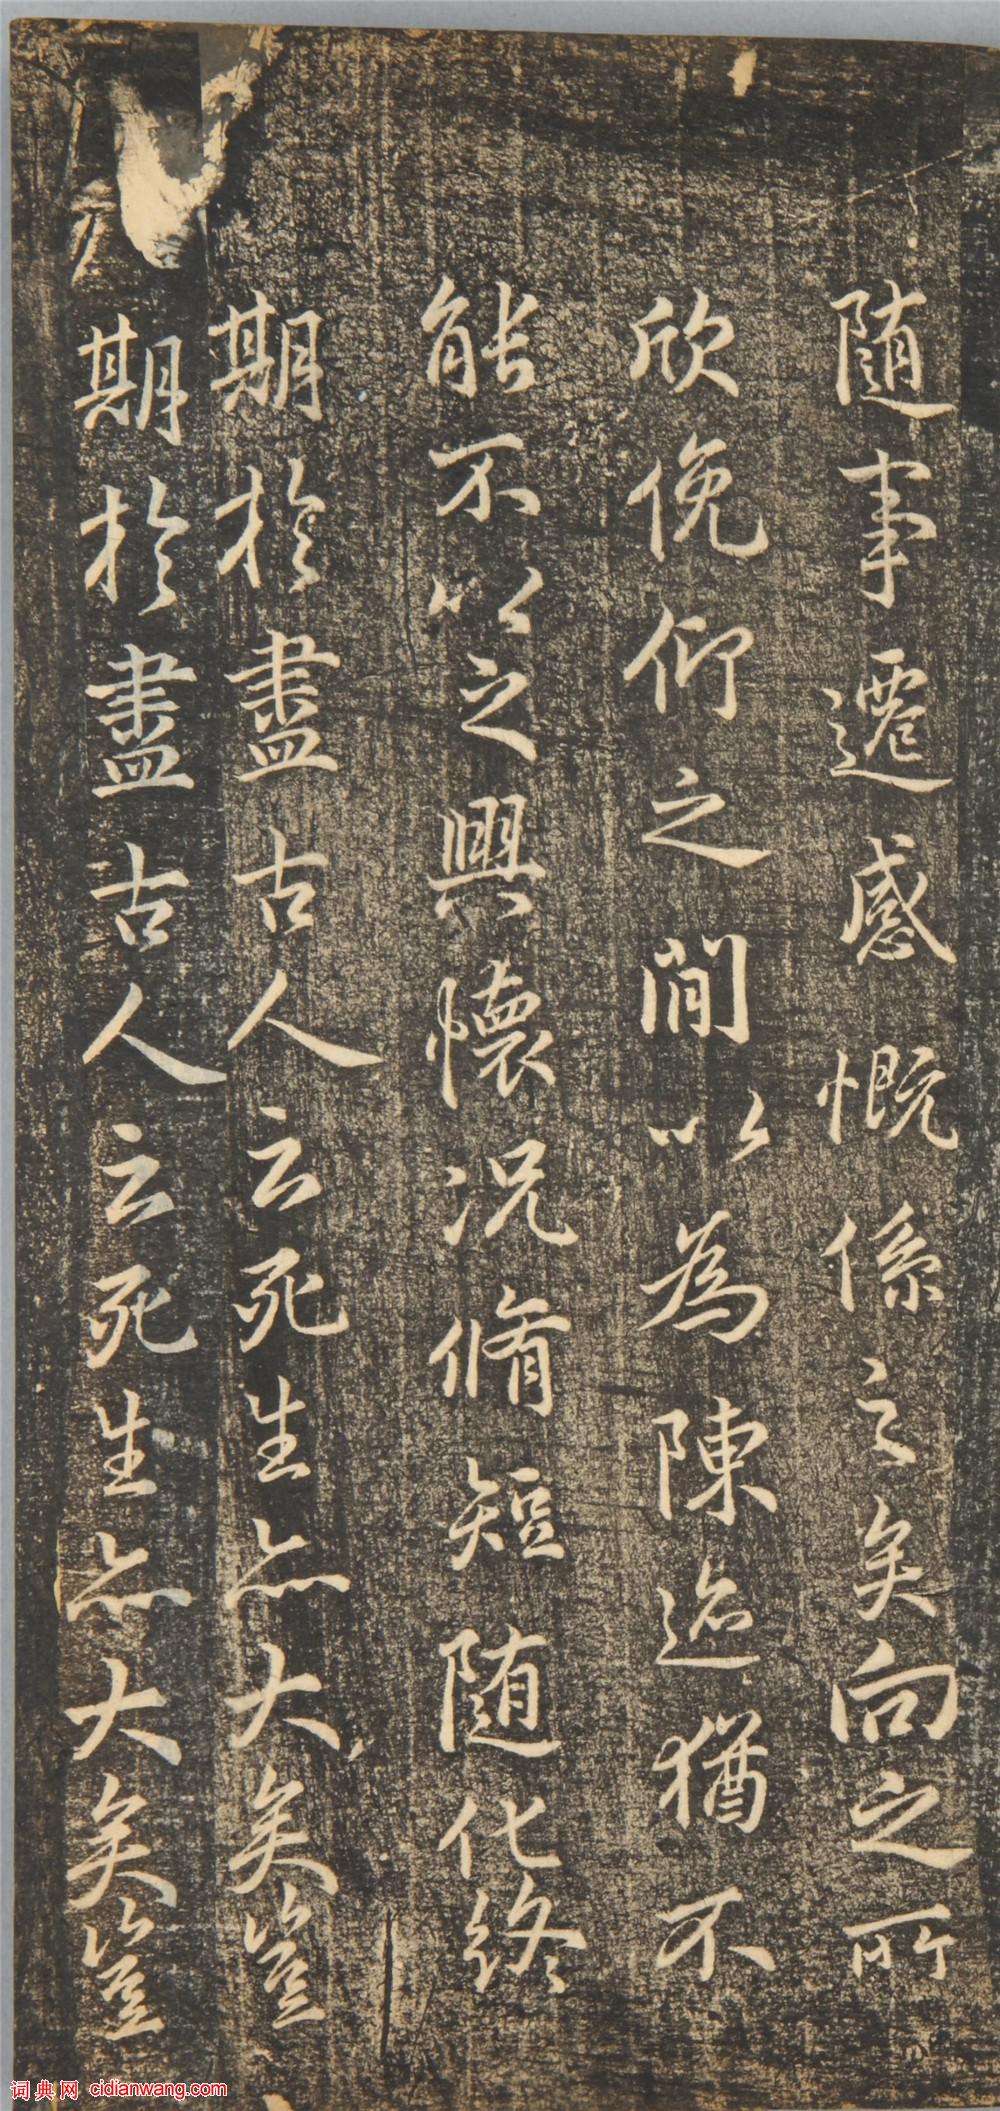 随事遷感慨係之矣向之所
欣俛仰之間以為陳迹猶不
能不以之興懷况脩短随化終
期於盡古人云死生亦大矣豈
期於盡古人云死生亦大矣豈
词典网 cidianwang.com